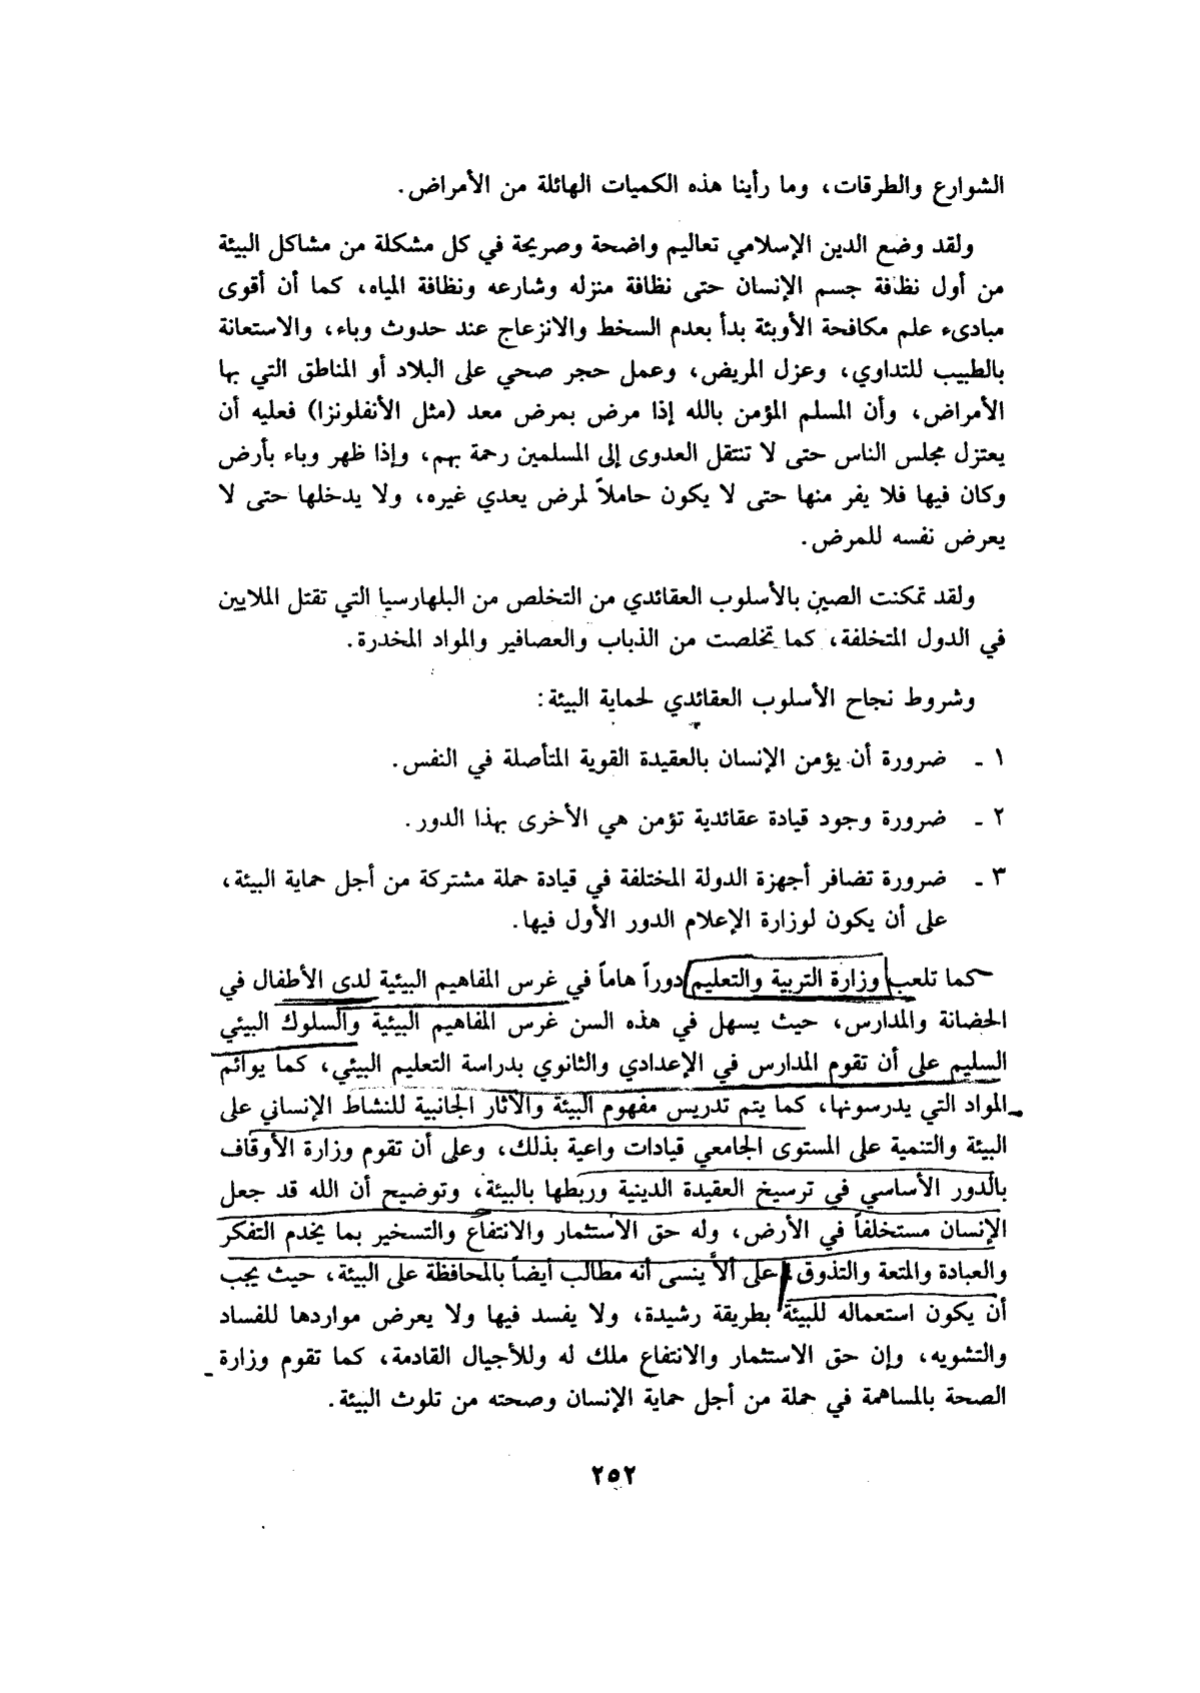 الشوارع والطرقات، وما رأينا هذه الكميات الهائلة من الأمراض.
ولقد وضع الدين الإسلامي تعاليم واضحة وصريحة في كل مشكلة من مشاكل البيئة
من أول نظافة جسم الإنسان حتى نظافة منزله وشارعه ونظافة المياه، كما أن أقوى
مبادىء علم مكافحة الأوبئة بدأ بعدم السخط والانزعاج عند حدوث وباء، والاستعانة
بالطبيب للتداوي، وعزل المريض، وعمل حجر صحي على البلاد أو المناطق التي بها
الأمراض، وأن المسلم المؤمن بالله إذا مرض بمرض معد (مثل الأنفلونزا) فعليه أن
يعتزل مجلس الناس حتى لا تنتقل العدوى إلى المسلمين رحمة بهم، وإذا ظهر وباء بأرض
وكان فيها فلا يفر منها حتى لا يكون حاملاً لمرض يعدي غيره، ولا يدخلها حتى لا
يعرض نفسه للمرض.
ولقد تمكنت الصين بالأسلوب العقائدي من التخلص من البلهارسيا التي تقتل الملايين
في الدول المتخلفة، كما تخلصت من الذباب والعصافير والمواد المخدرة.
وشروط نجاح الأسلوب العقائدي لحماية البيئة:
١ ـ ضرورة أن يؤمن الإنسان بالعقيدة القوية المتأصلة في النفس.
٢ ـ ضرورة وجود قيادة عقائدية تؤمن هي الأخرى بهذا الدور.
٣ ـ ضرورة تضافر أجهزة الدولة المختلفة في قيادة حملة مشتركة من أجل حماية البيئة،
على أن يكون لوزارة الإعلام الدور الأول فيها.
كما تلعب وزارة التربية والتعليم دوراً هاماً في غرس المفاهيم البيئية لدى الأطفال في
الحضانة والمدارس، حيث يسهل في هذه السن غرس المفاهيم البيئية والسلوك البيئي
السليم على أن تقوم المدارس في الإعدادي والثانوي بدراسة التعليم البيئي، كما يوائم
المواد التي يدرسونها، كما يتم تدريس مفهوم البيئة والآثار الجانبية للنشاط الإنساني على
البيئة والتنمية على المستوى الجامعي قيادات واعية بذلك، وعلى أن تقوم وزارة الأوقاف
بالدور الأساسي في ترسيخ العقيدة الدينية وربطها بالبيئة، وتوضيح أن الله قد جعل
الإنسان مستخلفاً في الأرض، وله حق الاستثمار والانتفاع والتسخير بما يخدم التفكر
والعبادة والمتعة والتذوق، على ألاّ ينسى أنه مطالب أيضاً بالمحافظة على البيئة، حيث يجب
أن يكون استعماله للبيئة بطريقة رشيدة، ولا يفسد فيها ولا يعرض مواردها للفساد
والتشويه، وإن حق الاستثمار والانتفاع ملك له وللأجيال القادمة، كما تقوم وزارة
الصحة بالمساهمة في حملة من أجل حماية الإنسان وصحته من تلوث البيئة.
٢٥٢